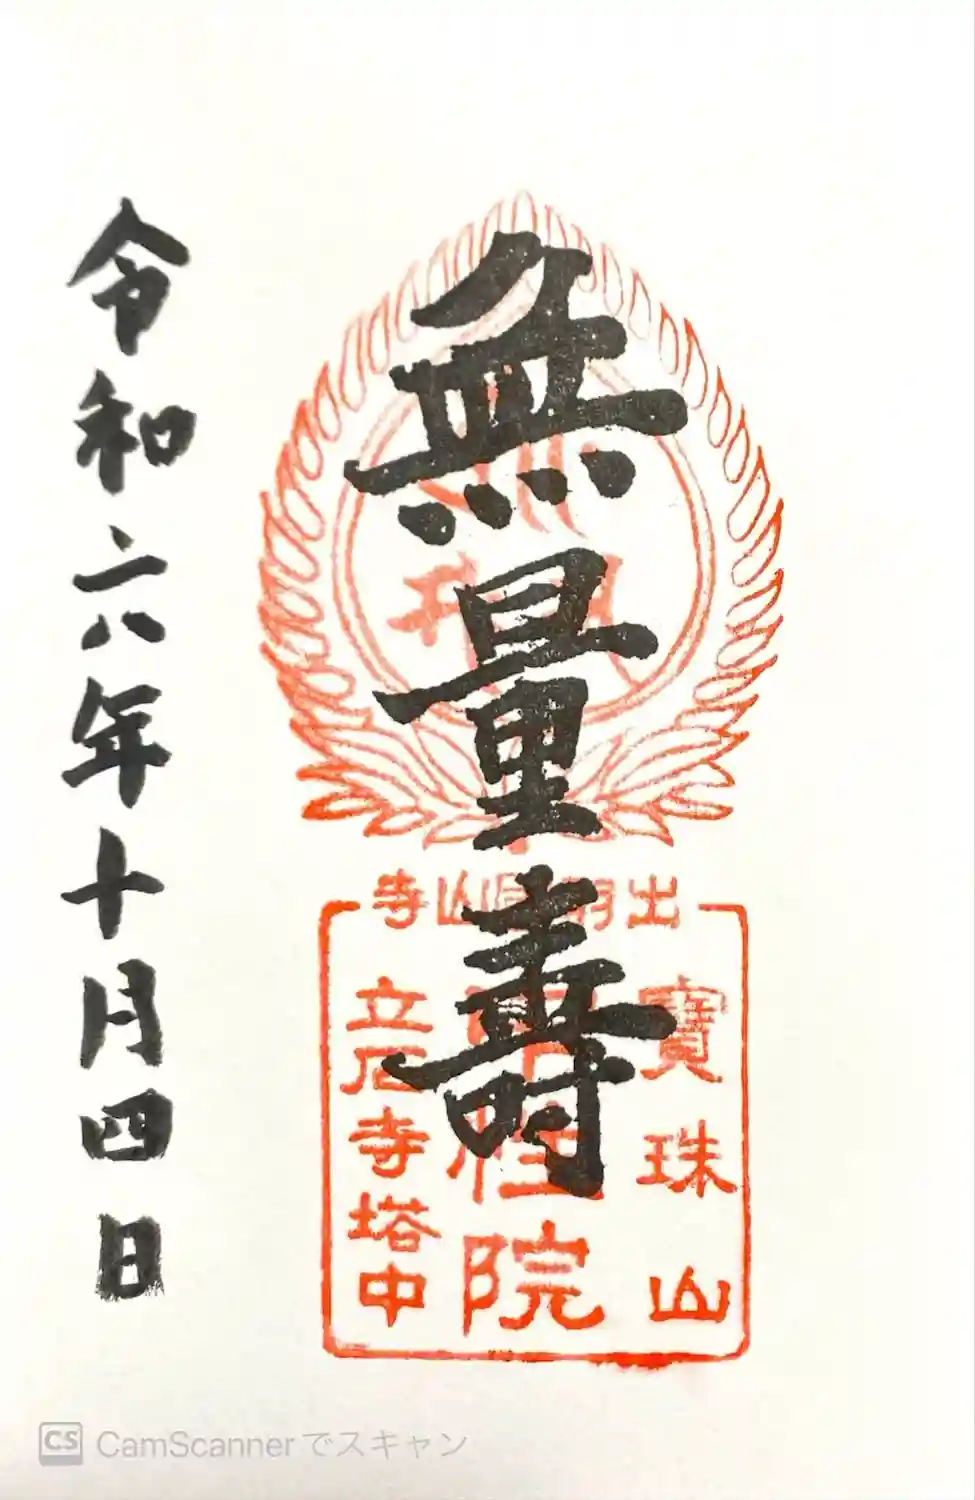 無量壽
寶珠山
院
立石寺塔中
令和六年十月四日
CS CamScannerでスキャン